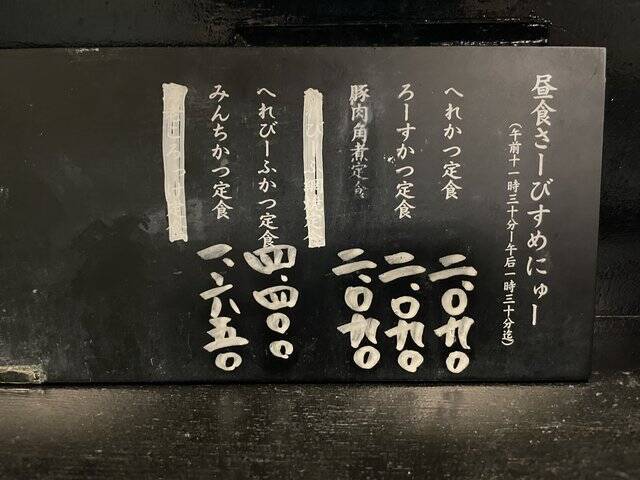 昼食さーびすめにゅー
(午前十一時三十分ー午后一時三十分迄)
へれかつ定食
二、〇九〇
ろーすかつ定食
二、〇九〇
豚肉角煮定食
二、〇九〇
へれびーふかつ定食
四、四〇〇
みんちかつ定食
一、六五〇